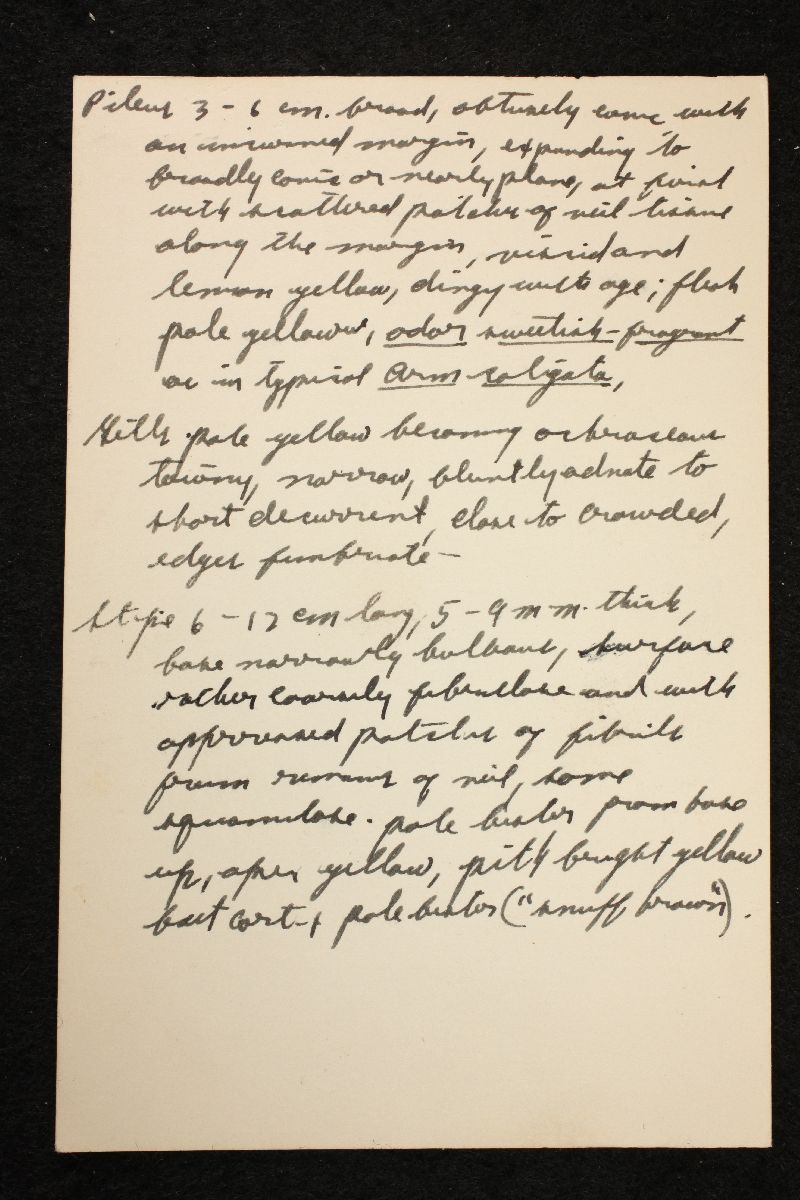 Pileus 3 - 6 cm. broad, obtusely conic with
an incurved margin, expanding to
broadly conic or nearly plane, at first
with scattered patches of veil tissue
along the margin, viscid and
lemon yellow, dingy with age; flesh
pale yellow, odor sweetish-fragrant
as in typical Arm caligata,
Gills pale yellow becoming ochraceous
tawny, narrow, bluntly adnate to
short decurrent, close to crowded,
edges fimbriate —
Stipe 6 - 12 cm long, 5 - 9 m m. thick,
base narrowly bulbous, surface
rather coarsely fibrillose and with
appressed patches of fibrils
from remains of veil, some
squamulose. pale bister from base
up, apex yellow, pith bright yellow
but cort-x pale bister ("snuff brown").